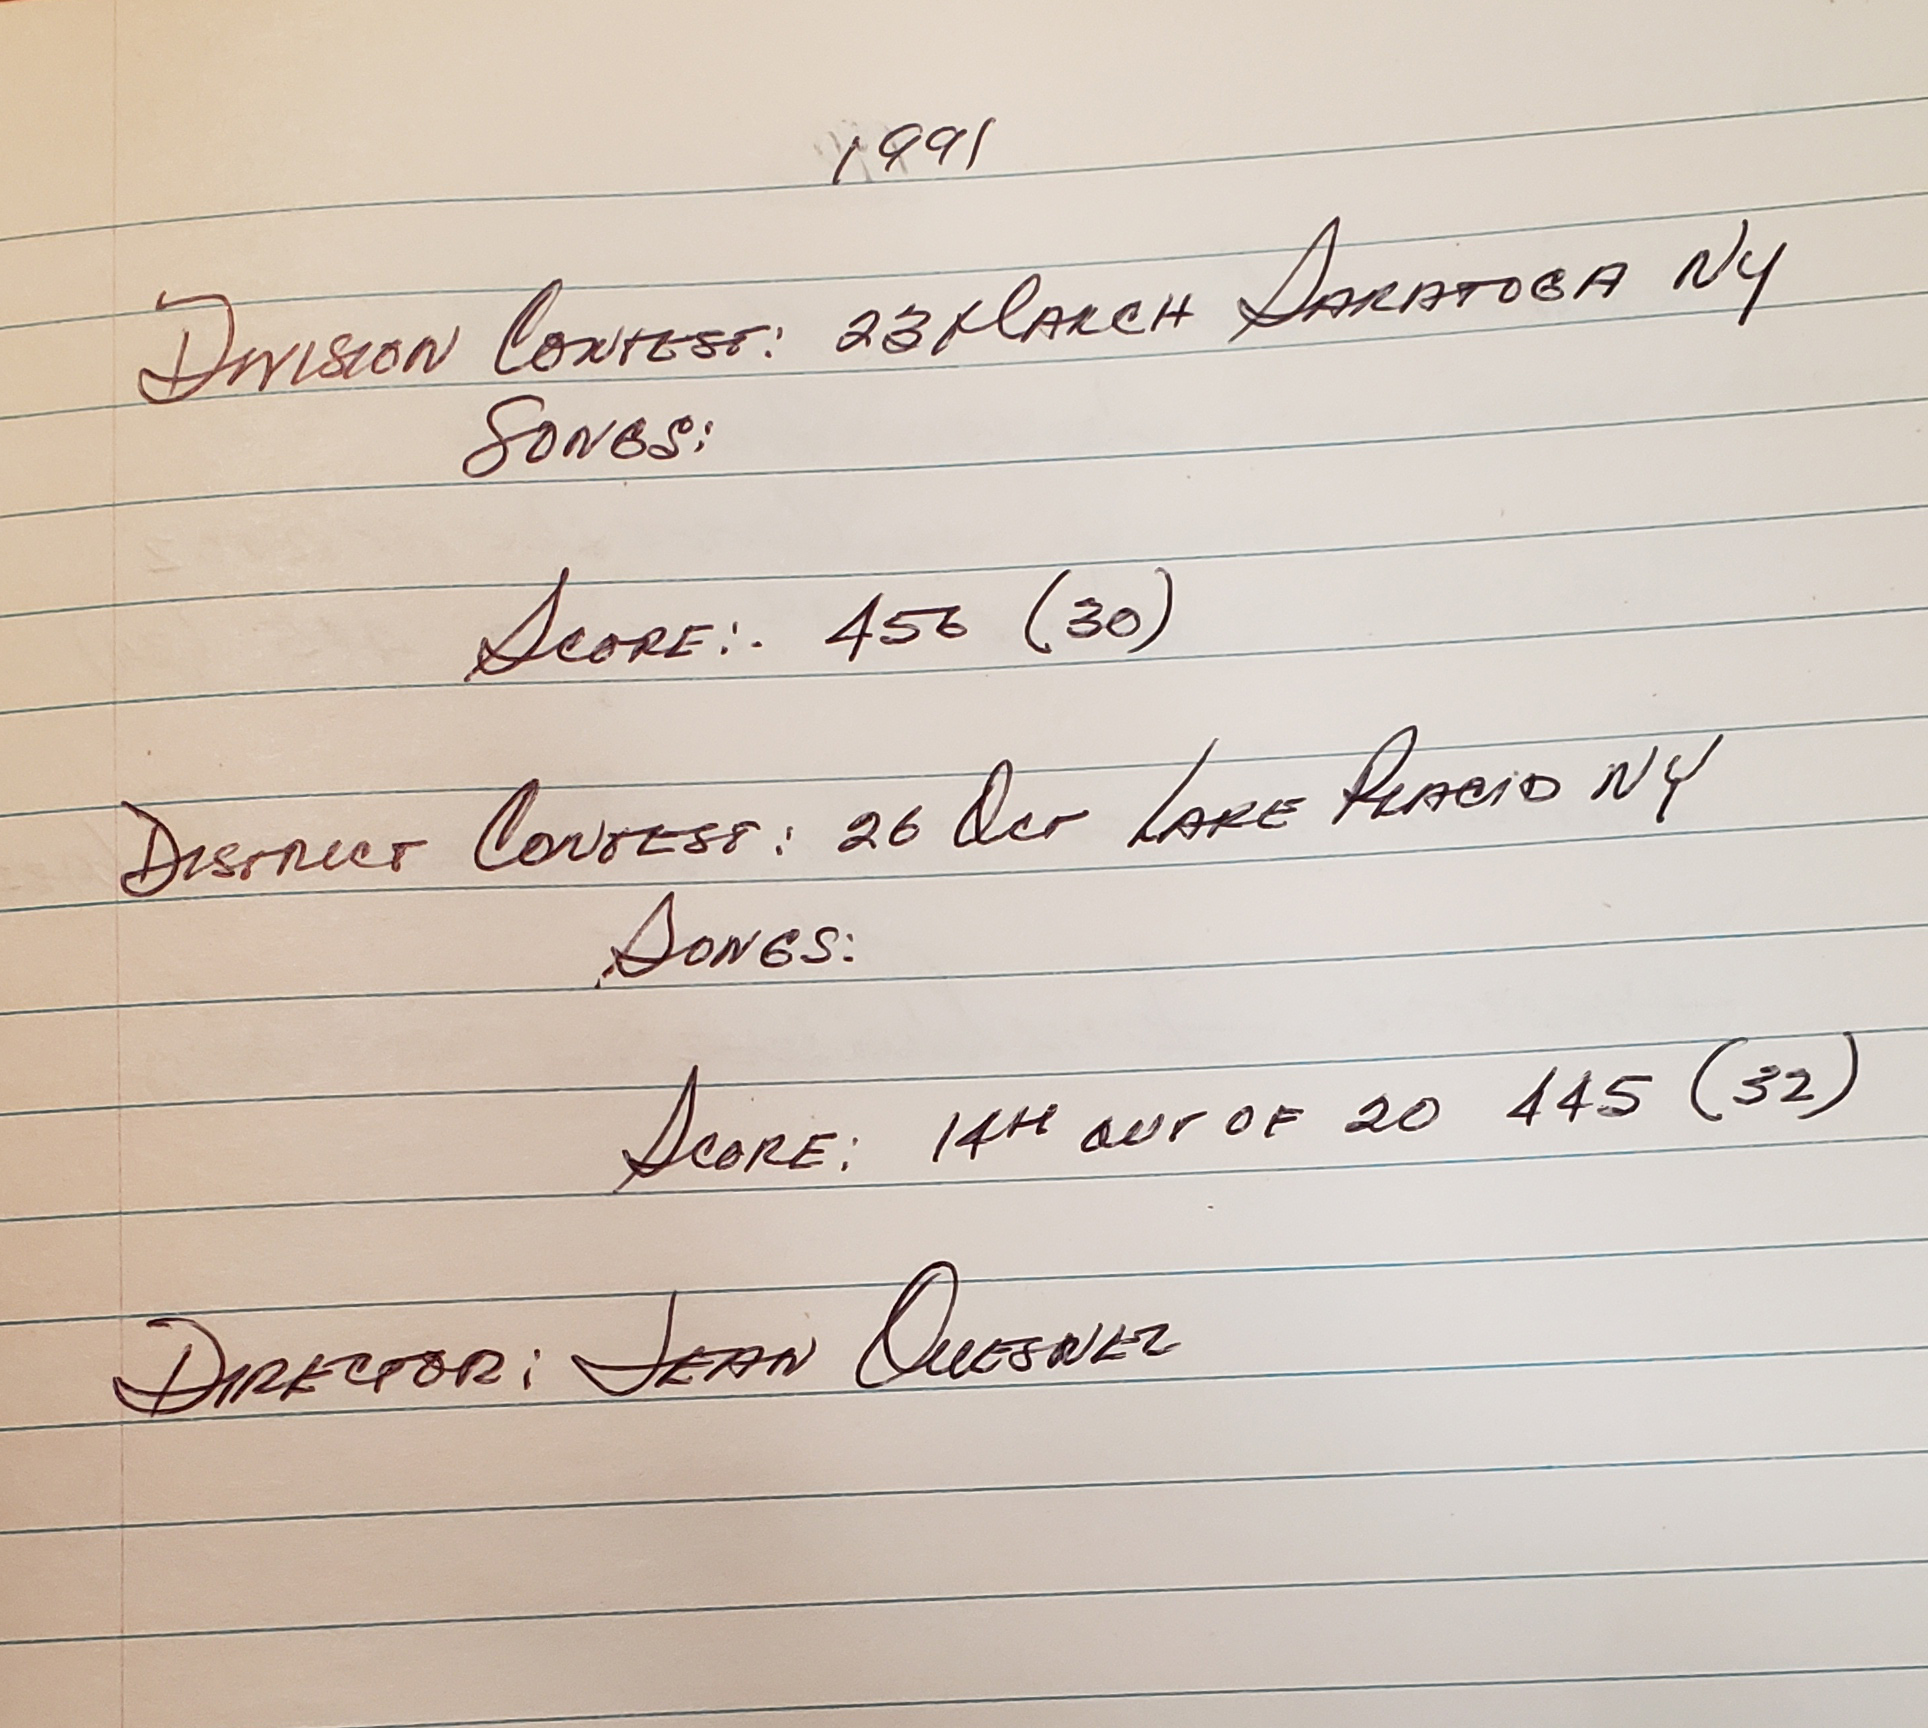 1991
DIVISION CONTEST: 23 MARCH SARATOGA NY
SONGS:
SCORE: 456 (30)
DISTRICT CONTEST: 26 OCT LAKE PLACID NY
SONGS:
SCORE: 14TH OUT OF 20 445 (32)
DIRECTOR: JEAN QUESNEL